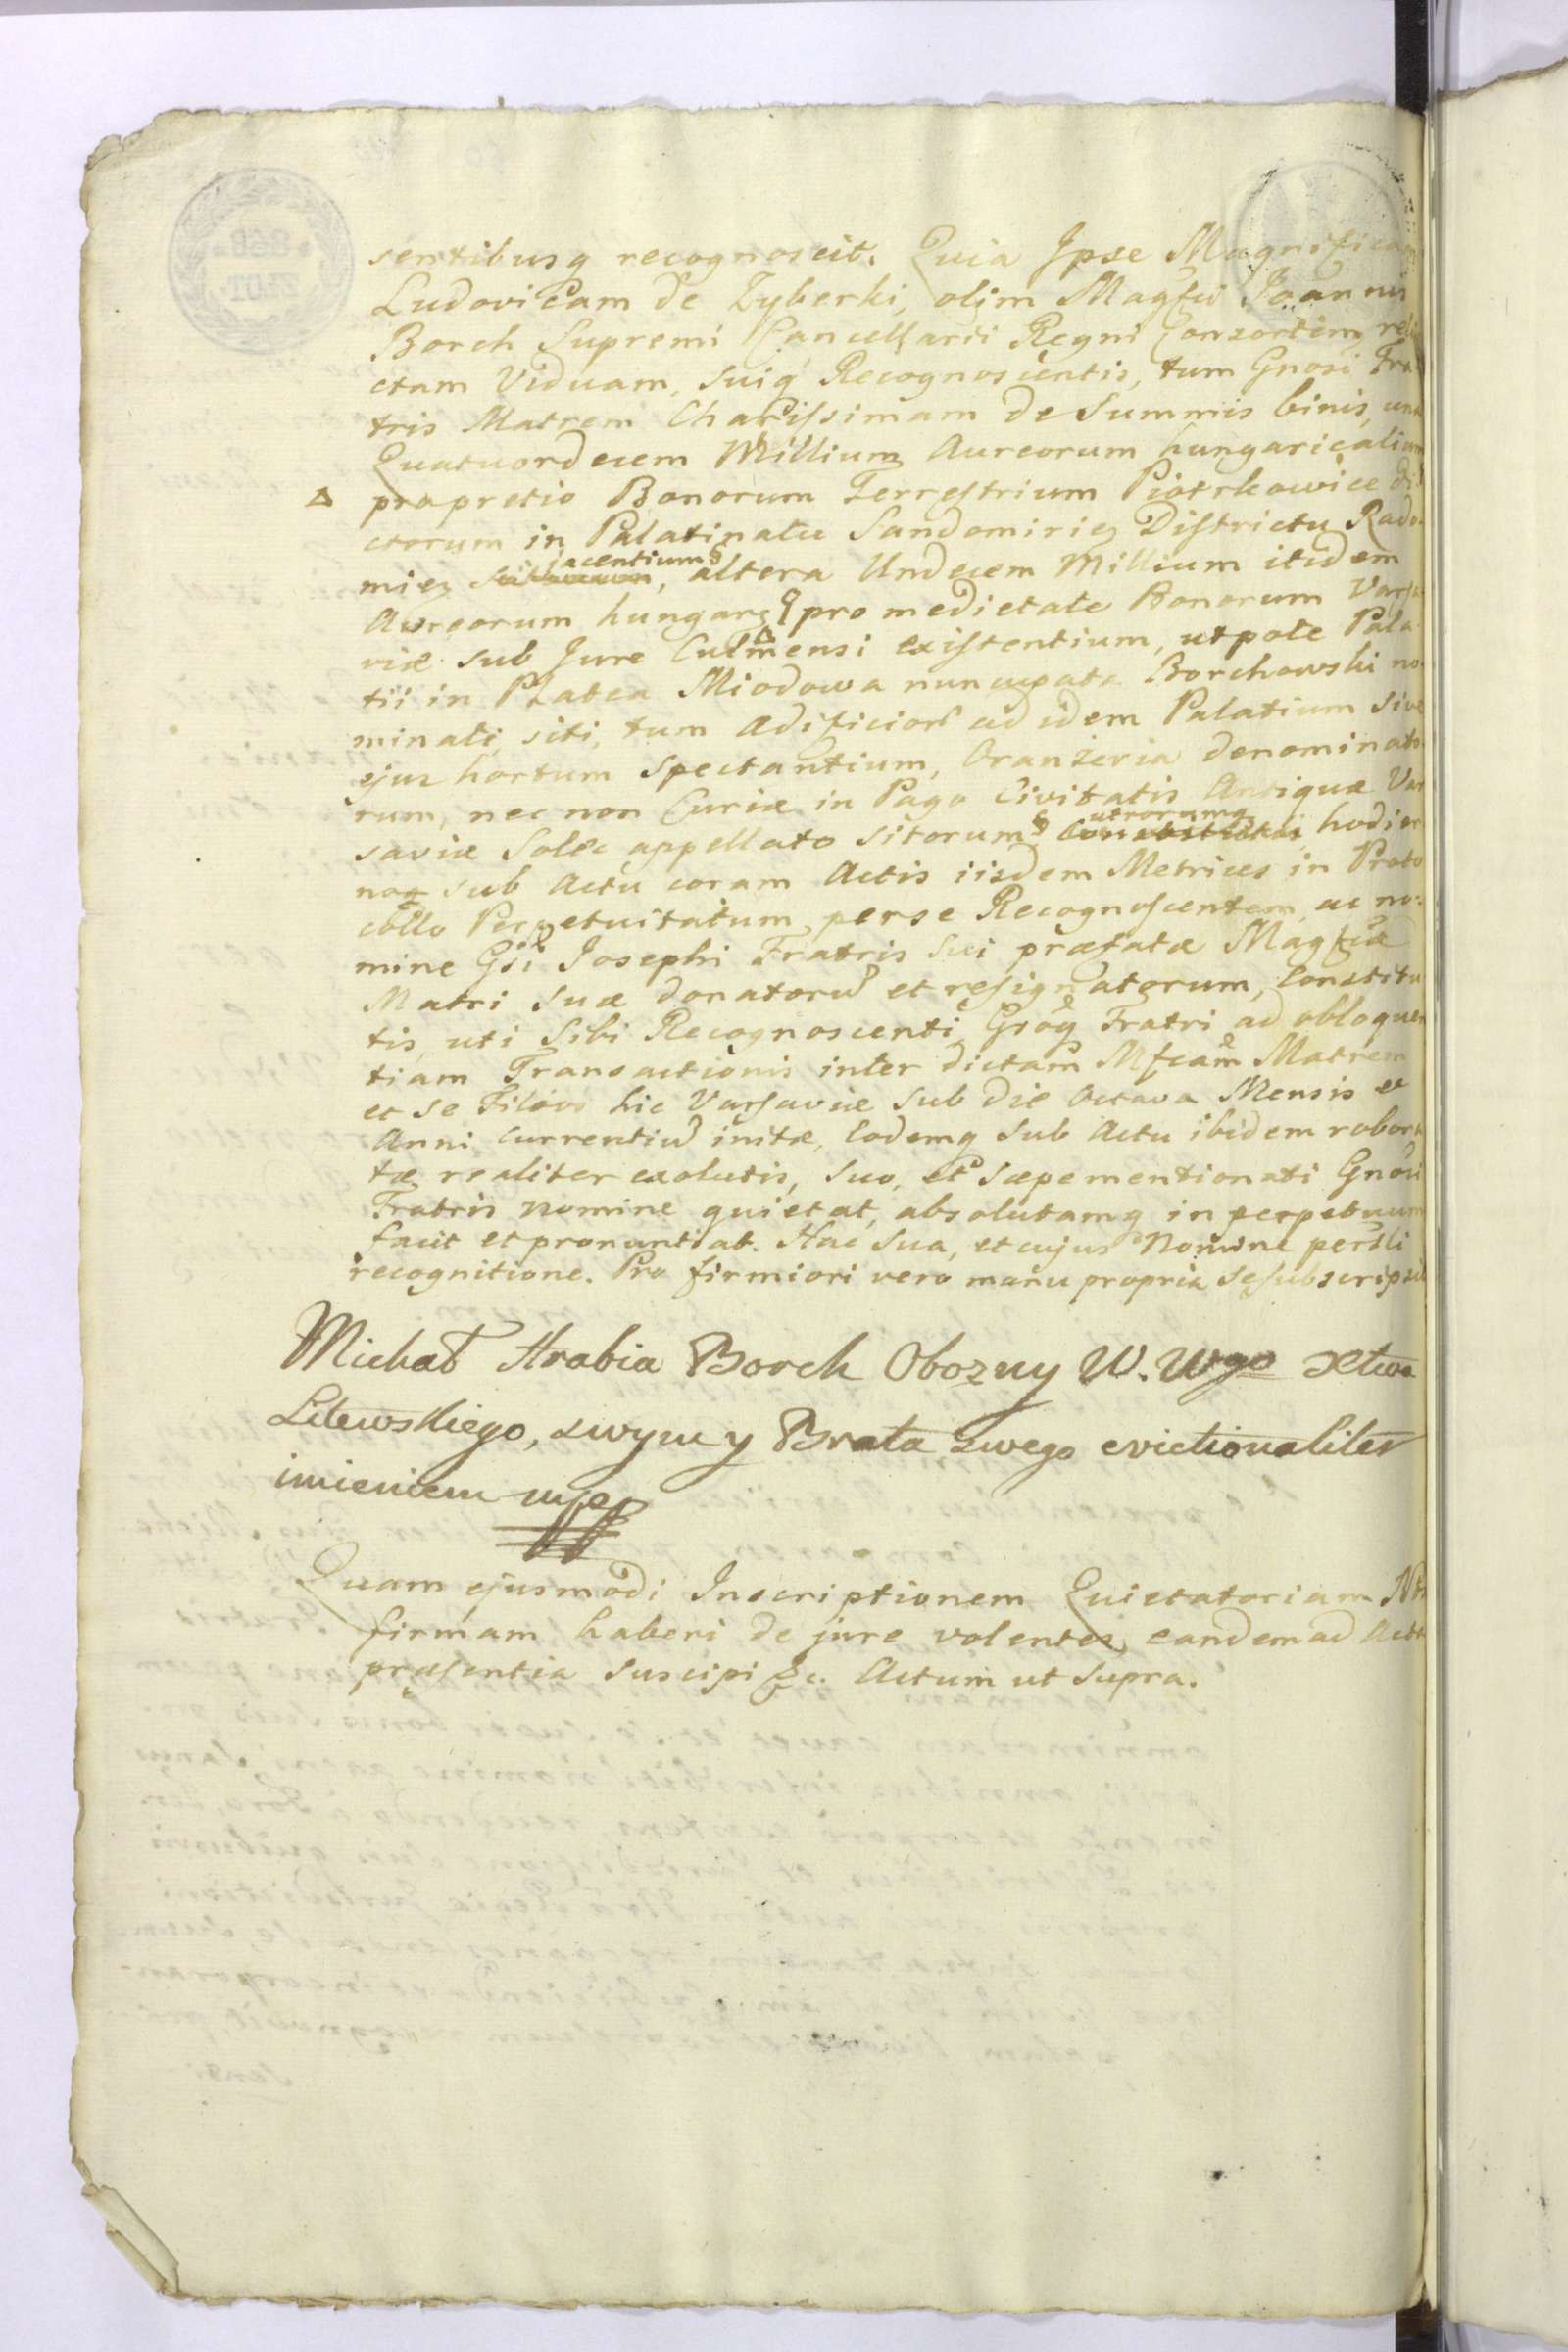 sentibusq recognoscit. Quia Ipse Magnificam
Ludovicam de Zyberki, olim Magfci Joannis
Borch Supremi Cancellarii Regni Consortem reli
ctam Viduam, suiq Recognoscentis, tum Gnosi Fra
tris Matrem Charissimam de Summis binis, una
Quatuordecem Millium Aureorum hungaricalium
pro pretio Bonorum Terrestrium Piotrkowice di
ctorum in Palatinatu Sandomirien Districtu Rado
mien jacentium, altera Undecem Millium itidem
Aureorum hungar pro medietate Bonorum Varsa
viæ sub Jure Culmensi existentium, utpote Pala
tii in Platea Miodowa nuncupata Borchowski no
minati, siti, tum Ædificior ad idem Palatium sive
ejus hortum spectantium, Oranzeria denominato
rum, nec non Curiæ in Pago Civitatis Antiquæ Var
saviæ Solec appellato sitorum utrorumq hodier
noq sub Actu coram Actis iisdem Metrices in Proto
collo Perpetuitatum per se Recognoscentem, ac no:
mine Gsi Josephi Fratris sui præfatæ Magfcæ
Matri suæ donatoru et resignatorum, Constitu
tis, uti sibi Recognoscenti Gsoq Fratri ad obloquen
tiam Transactionis inter dictam Mfcam Matrem
et se Filios hic Varsaviæ sub die Octava Mensis et
Anni currentiu initæ, Eodemq sub Actu ibidem robora
tæ realiter exolutis, suo, et sæpementionati Gnosi
Fratris nomine quietat, absolutamq in perpetuum
facit et pronuntiat. Hac sua, et cujus Nomine persli
recognitione. Pro firmiori vero manu propria se subscripsit
Michał Hrabia Borch Obozny W. Wgo Xstwa
Litewskiego, swym y Brata swego evictionaliter
imieniem mpp
Quam ejusmodi Inscriptionem Quietatoriam Nos
firmam haberi de jure volentes, eandem ad Acta
præsentia suscipi &c. Actum ut supra.